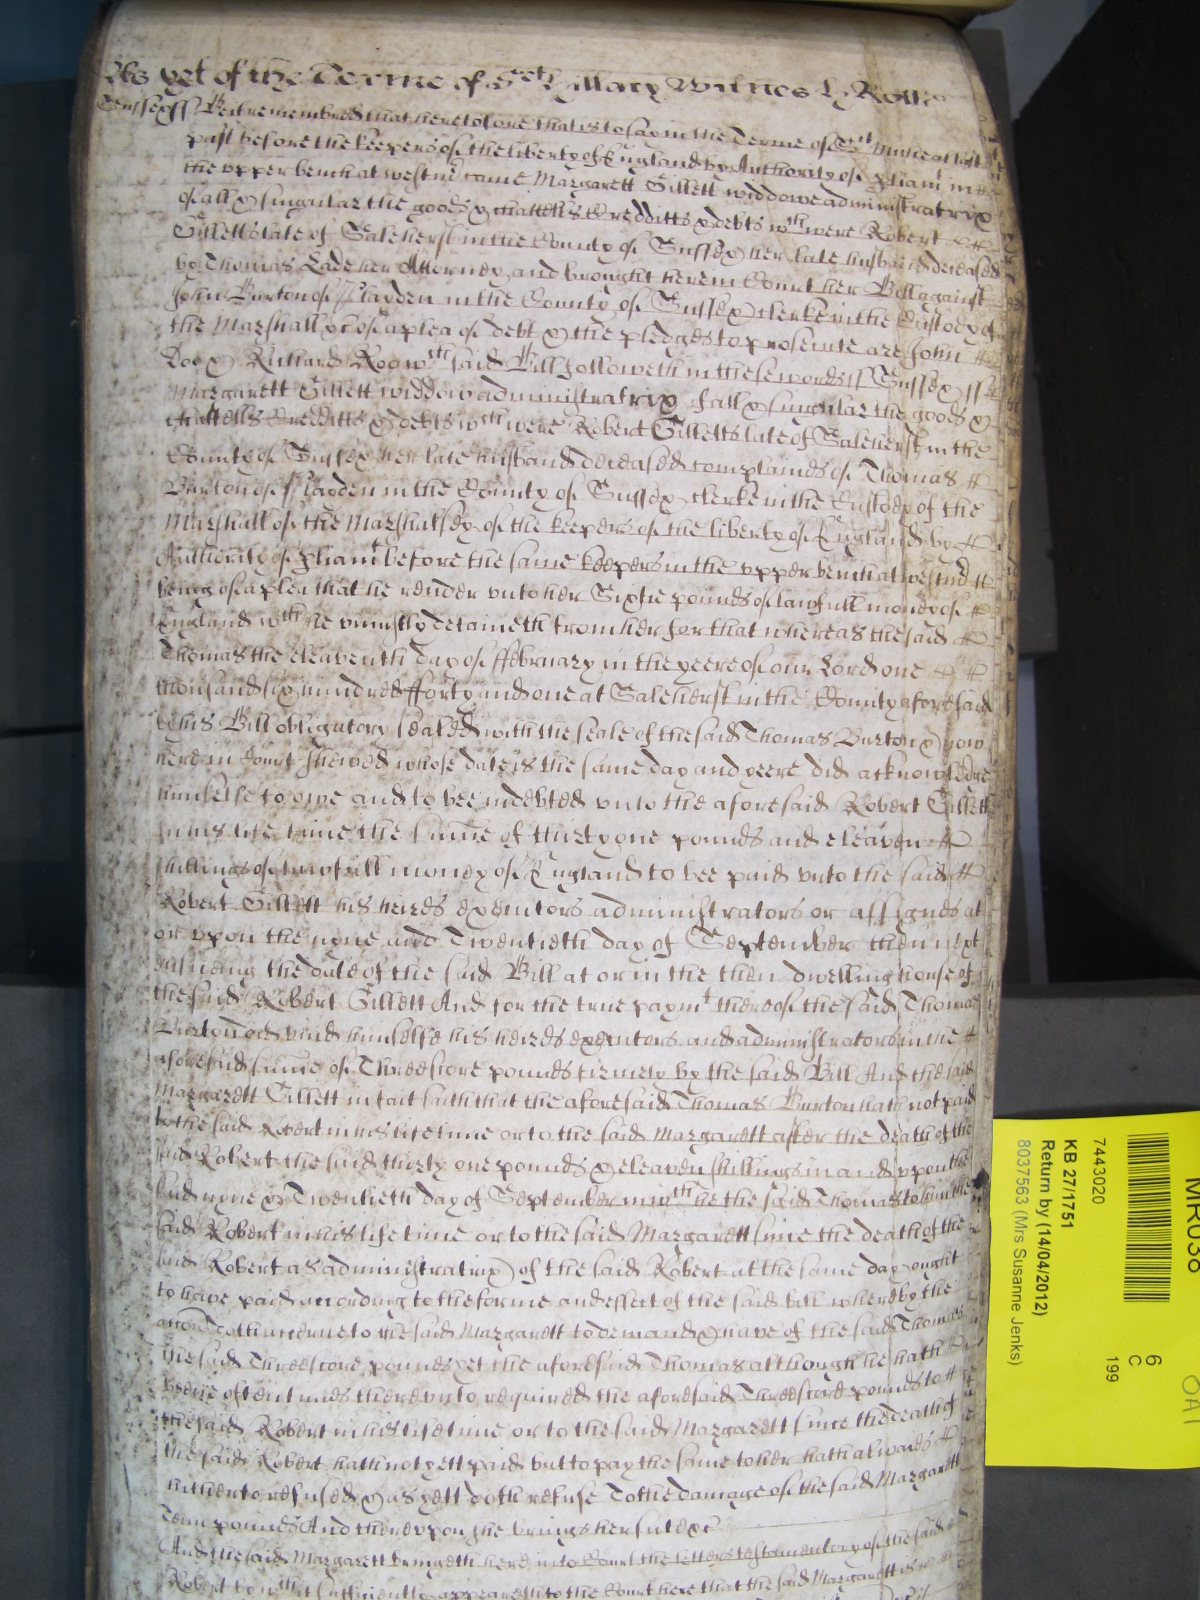 As yet of the Terme of Sct Hillary Witnes H Rolle
Sussex ss Be it remembred that heretofore that is to say in the Terme of Sct Michael last
past before the keepers of the liberty of England by Authority of Parliamt in
the upper bench at Westmr came Margarett Gillett widdowe administratrix
of all & singular the goods & chattells Credditts & debts wch were Robert
Gilletts late of Salehurst in the County of Sussex her late husband deceased
by Thomas Lade her Attorney and brought here in Court her Bill against
John Burton of in the County of Sussex clerke in the Custody of
the Marshall &c of a plea of debt & the pledges to prosecute are John
Doe & Richard Roo wch said Bill followeth in these words ss Sussex ss
Margarett Gillett widdow administratrix of all & singular the goods &
chattells Credditts & debts wch were Robert Gilletts late of Salehurst in the
County of Sussex her late husband deceased complaineds of Thomas
Burton of in the County of Sussex clerke in the Custody of the
Marshall of the Marshalsey of the keepers of the liberty of England by
Authority of Parliamt before the same keepers in the upper bench at Westmr
being of a plea that he render unto her Sixtie pounds of lawfull money of
England wch he uniustly detaineth from her for that whereas the said
Thomas the eleaventh day of ffebruary in the yeere of our Lord one
thousand six hundred fforty and one at Salehurst in the County aforesaid
by his Bill obligatory sealed with the seale of the said Thomas Burton & now
here in Court shewed whose date is the same day and yeere did acknowledge
himselfe to owe and to bee indebted unto the aforesaid Robert Gillett
in his life time the summe of thirty one pounds and eleaven
shillings of lawfull money of England to bee paid unto the said
Robert Gillett his heires executors administrators or assignes at
or upon the nyne and Twentieth day of September then next
ensueing the date of the said Bill at or in the then dwelling house of
the said Robert Gillett And for the true paymt thereof the said Thomas
Burton did bind himselfe his heires executors and administrators in the
aforesaid summe of Threescore pounds firmely by the said Bill And the said
Margarett Gillett in fact saith that the aforesaid Thomas Burton hath not paid
to the said Robert in his life time or to the said Margarett after the death of the
said Robert the said thirty one pounds & eleaven shillings in and upon the
said nyne & Twentieth day of September in wch he the said Thomas to him the
said Robert in his life time or to the said Margarett since the death of the
said Robert as administratrix of the said Robert at the same day ought
to have paid according to the forme and effect of the said Bill whereby the
accon doth accrue to the said Margarett to demand & have of the said Thomas
the said Threescore pounds yet the aforesaid Thomas although he hath
beene oftentimes thereunto required the aforesaid Threescore pounds to
the said Robert in his life time or to the said Margarett since the death of
the said Robert hath not yett paid but to pay the same to her hath alwaies
hitherto refused & as yett doth refuse To the damage of the said Margarett
Tenn pounds And thereupon she brings her sute &c
And the said Margarett bringeth here into Court the letters testamentory of the said
Robert by wch it sufficiently appeareth to the Court here that the said Margarett is
MR038
6
C
199
7443020
KB 27/1751
Return by (14/04/2012)
8037563 (Mrs Susanne Jenks)